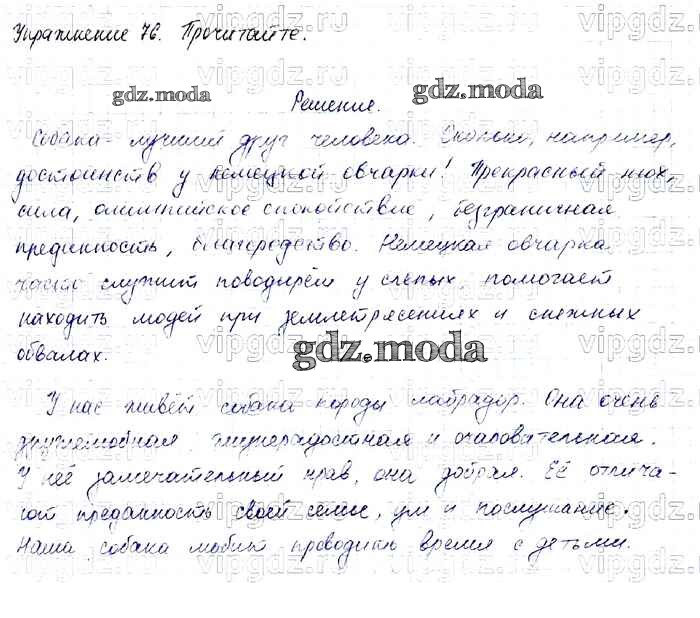 Упражнение 76. Прочитайте.
gdz.moda
gdz.moda
Решение.
Собака - лучший друг человека. Сколько, например,
достоинств у немецкой овчарки! Прекрасный нюх,
сила, олимпийское спокойствие, безграничная
преданность, благородство. Немецкая овчарка
часто служит поводырём у слепых, помогает
находить людей при землетрясениях и снежных
обвалах.
gdz.moda
У нас живёт собака породы лабрадор. Она очень
дружелюбная, жизнерадостная и очаровательная.
У неё замечательный нрав, она добрая. Её отлича-
ют преданность своей семье, ум и послушание.
Наша собака любит проводить время с детьми.